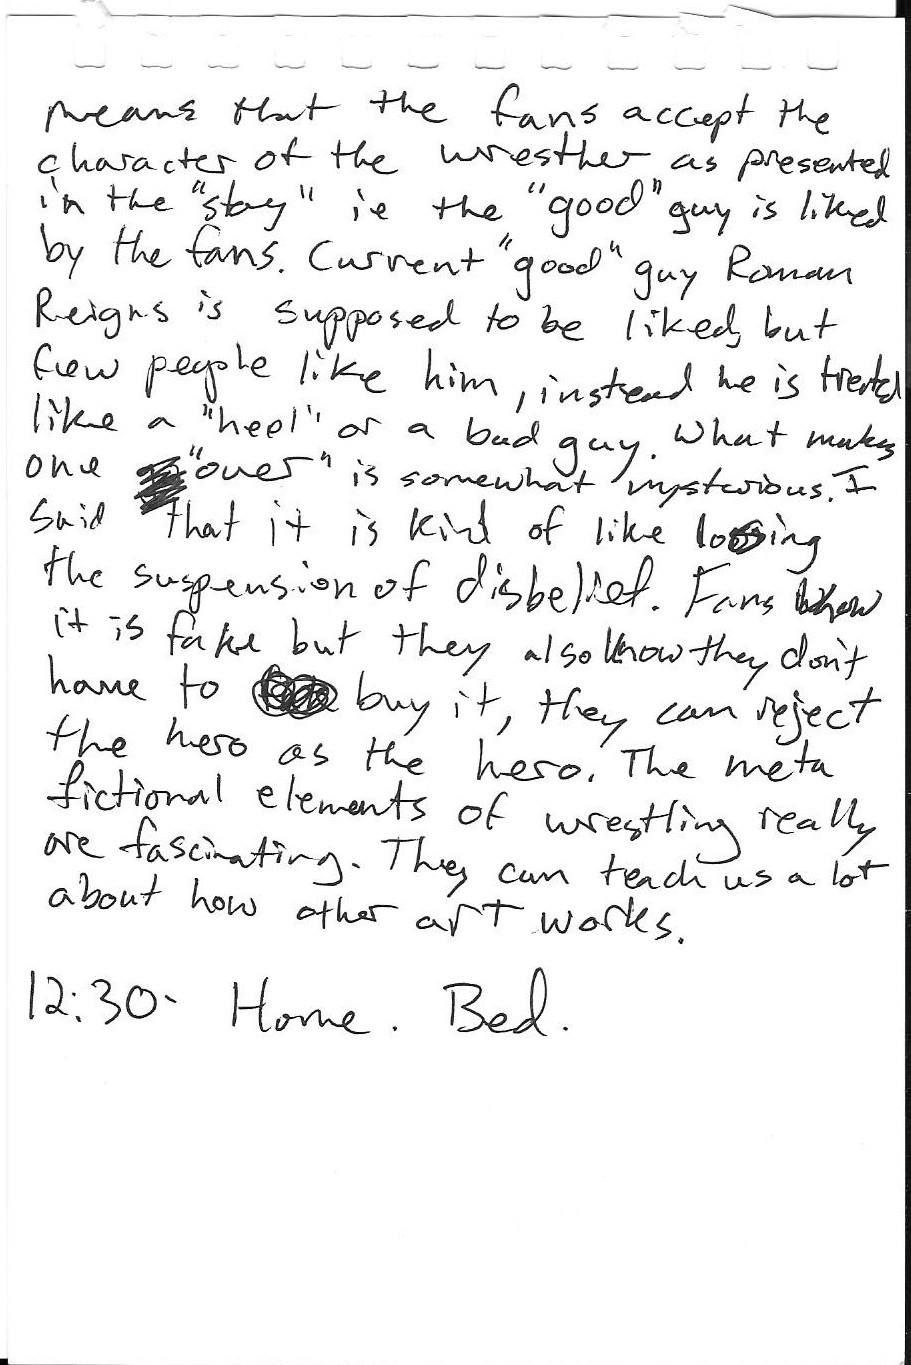 means that the fans accept the
character of the wrestler as presented
in the "story" ie the "good" guy is liked
by the fans. Current "good" guy Roman
Reigns is supposed to be liked, but
few people like him, instead he is treated
like a "heel" or a bad guy. What makes
one "over" is somewhat mysterious. I
said that it is kind of like losing
the suspension of disbelief. Fans know
it is fake but they also know they don't
have to buy it, they can reject
the hero as the hero. The meta
fictional elements of wrestling really
are fascinating. They can teach us a lot
about how other art works.
12:30- Home. Bed.